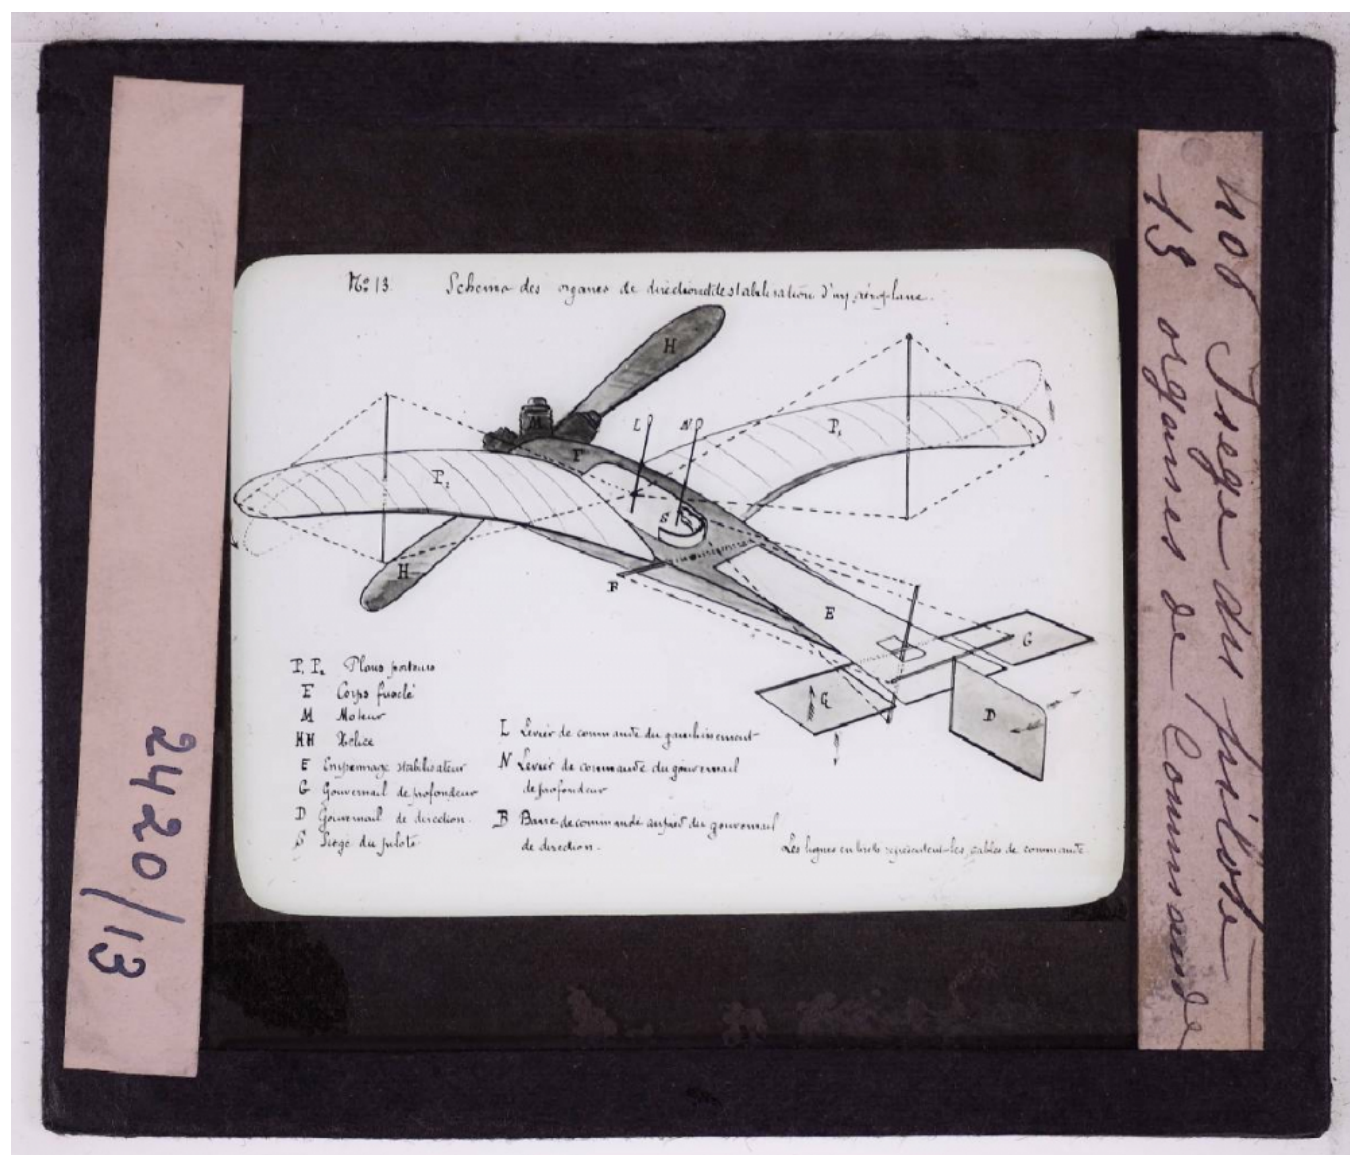 No 13. Schema des organes de direction et de stabilisation d'un aéroplane.
H
M
L
N
P₁
F
P₂
S
H
B
E
G
G
D
P₁ P₂ Plans porteurs
E Corps fuselé
M Moteur
HH Hélice
E Empennage stabilisateur
G Gouvernail de profondeur
D Gouvernail de direction
S Siège du pilote
L Levier de commande du gauchissement
N Levier de commande du gouvernail
de profondeur
B Barre de commande au pied du gouvernail
de direction.
Les lignes en traits représentent les cables de commande
2420/13
du pilote
13 organes de Commande